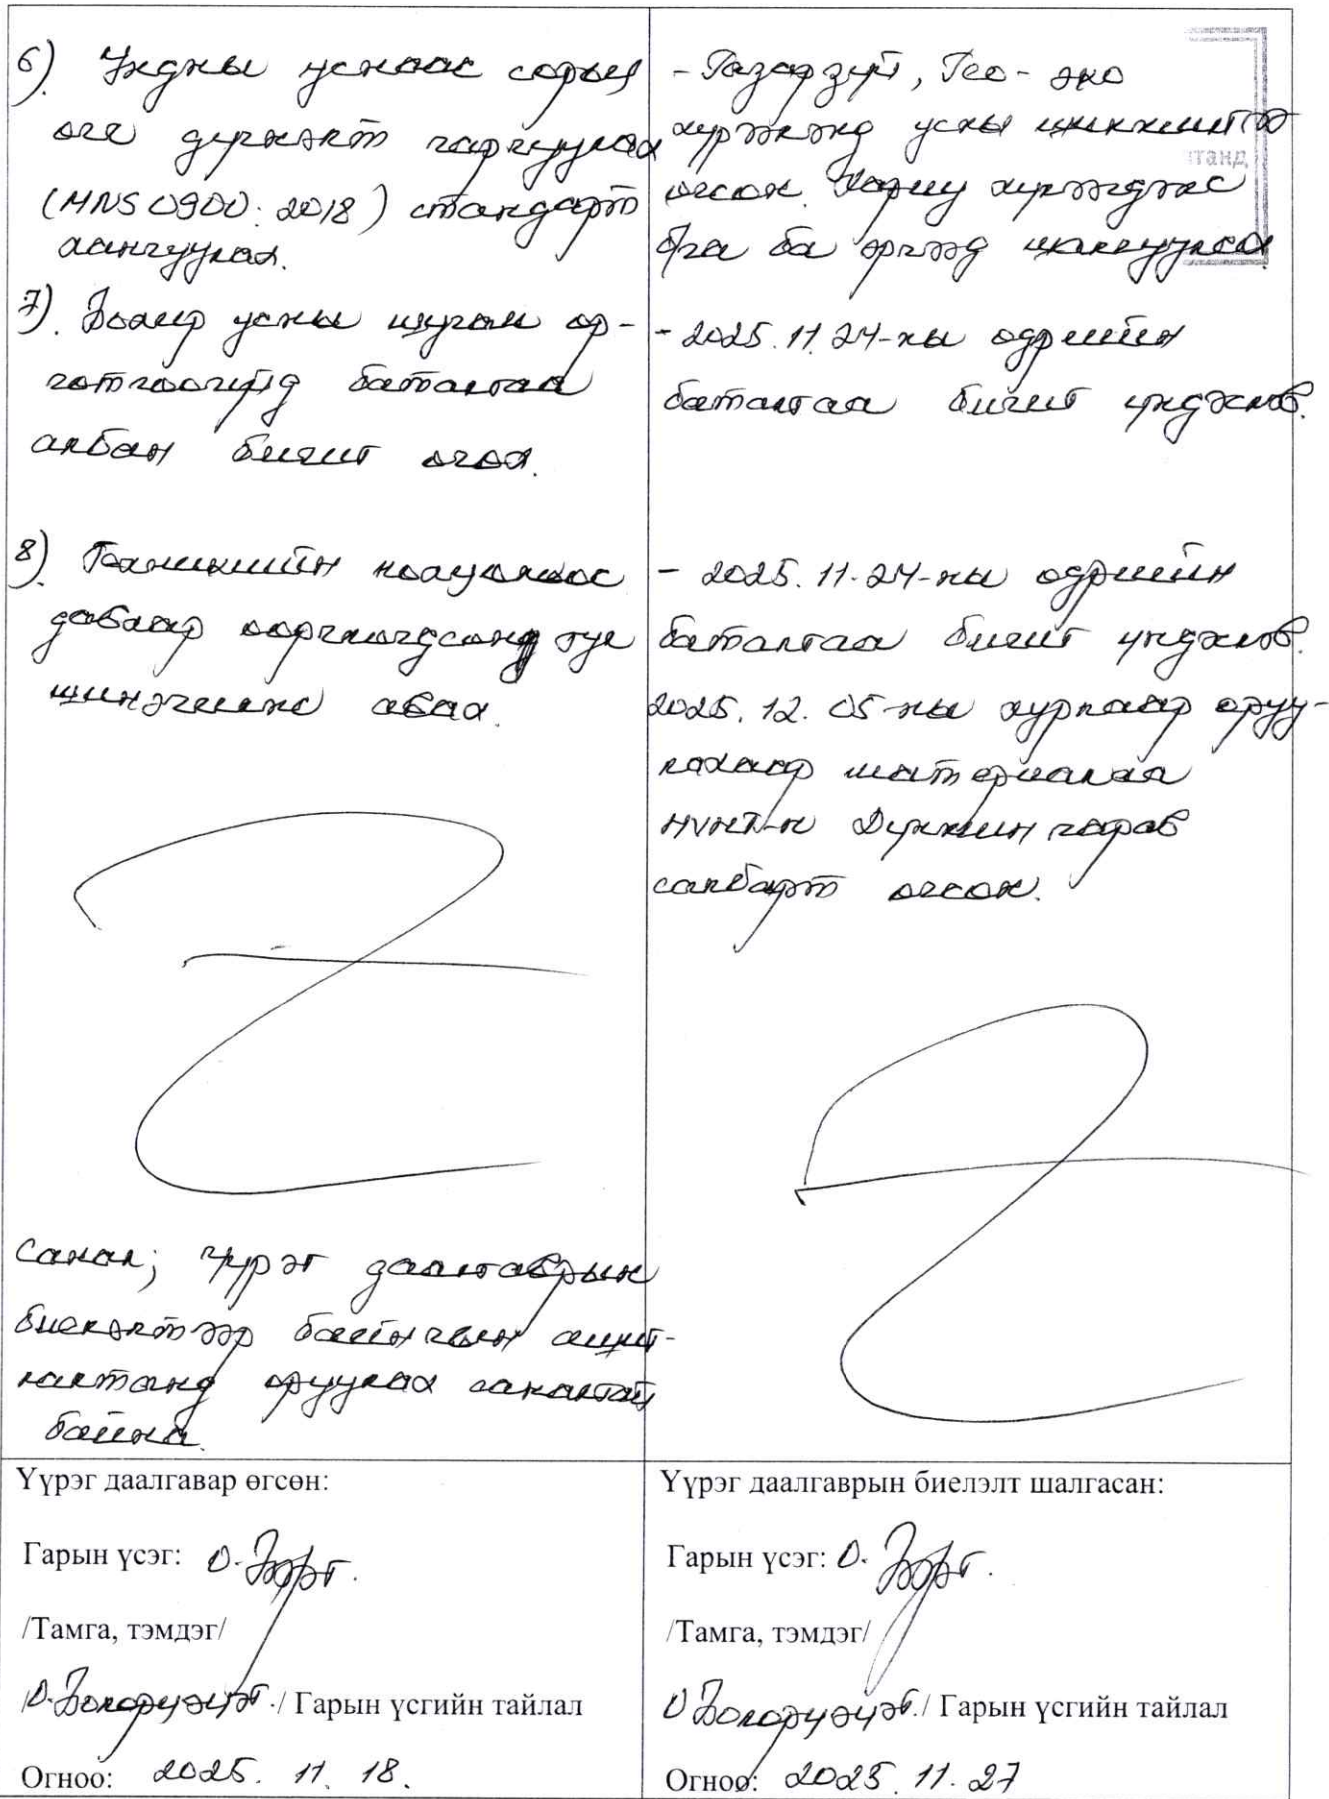 6). Ундны уснаас сорьц
өгч дүгнэлт гаргуулах
(MNS 0900:2018) стандарт
хангуулах.
7). Бохир усны шугам өр-
гөтгөөгүйд баталгаа
албан бичиг өгөх.
8). Техникийн
давхар ооргсогдсонд тул
шинэчилж авах.
Санал; Үүрэг даалгаврын
биелэлтээр байнгын ашиг-
лалтанд оруулах саналтай
байна.
- Газарзүй, Гео-эко
хүрээлэнд усны шинжилгээ
өгсөн. Хариу хүлээгдэж
бга ба эргээд
- 2025.11.24-ны өдрийн
баталгаа бичиг үндэслэв.
- 2025.11.24-ны өдрийн
баталгаа бичиг үндэслэв.
2025.12.05-ны хурлаар оруу-
лахаар материалаа
Дүнжингарав
салбарт өгсөн.
танд
Үүрэг даалгавар өгсөн:
Гарын үсэг:
/Тамга, тэмдэг/
/ Гарын үсгийн тайлал
Огноо: 2025. 11. 18.
Үүрэг даалгаврын биелэлт шалгасан:
Гарын үсэг:
/Тамга, тэмдэг/
/ Гарын үсгийн тайлал
Огноо: 2025. 11. 27